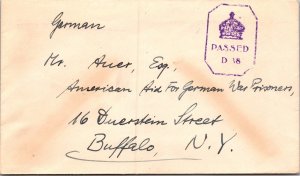 German
PASSED
D 38
Mr. Auer, Esq,
American Aid For German War Prisoners,
16 Duerstein Street
Buffalo, N.Y.